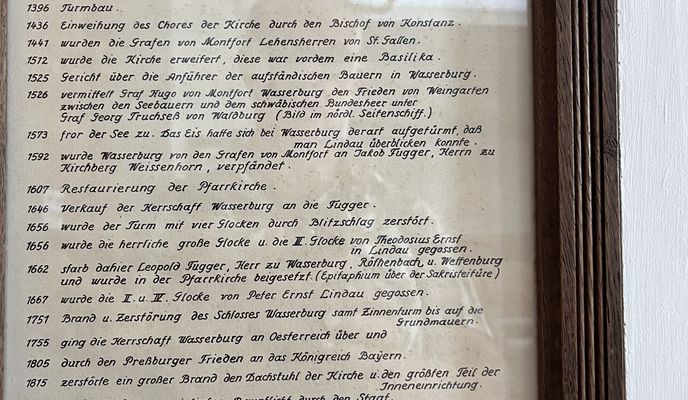 1396 Turmbau.
1436 Einweihung des Chores der Kirche durch den Bischof von Konstanz.
1441 wurden die Grafen von Montfort Lehensherren von St. Gallen.
1512 wurde die Kirche erweitert, diese war vordem eine Basilika.
1525 Gericht über die Anführer der aufständischen Bauern in Wasserburg.
1526 vermittelt Graf Hugo von Montfort Wasserburg den Frieden von Weingarten
zwischen den Seebauern und dem schwäbischen Bundesheer unter
Graf Georg Truchseß von Waldburg (Bild im nördl. Seitenschiff.)
1573 fror der See zu. Das Eis hatte sich bei Wasserburg derart aufgetürmt, daß
man Lindau überblicken konnte.
1592 wurde Wasserburg von den Grafen von Montfort an Jakob Fugger, Herrn zu
Kirchberg Weissenhorn, verpfändet.
1607 Restaurierung der Pfarrkirche.
1646 Verkauf der Herrschaft Wasserburg an die Fugger.
1656 wurde der Turm mit vier Glocken durch Blitzschlag zerstört.
1656 wurde die herrliche große Glocke u. die III. Glocke von Theodosius Ernst
in Lindau gegossen.
1662 starb dahier Leopold Fugger, Herr zu Wasserburg, Röthenbach, u. Wettenburg
und wurde in der Pfarrkirche beigesetzt. (Epitaphium über der Sakristeitüre)
1667 wurde die II. u. IV. Glocke von Peter Ernst Lindau gegossen.
1751 Brand u. Zerstörung des Schlosses Wasserburg samt Zinnenturm bis auf die
Grundmauern.
1755 ging die Herrschaft Wasserburg an Oesterreich über und
1805 durch den Preßburger Frieden an das Königreich Bayern.
1815 zerstörte ein großer Brand den Dachstuhl der Kirche u. den größten Teil der
Inneneinrichtung.
durch den Staat.